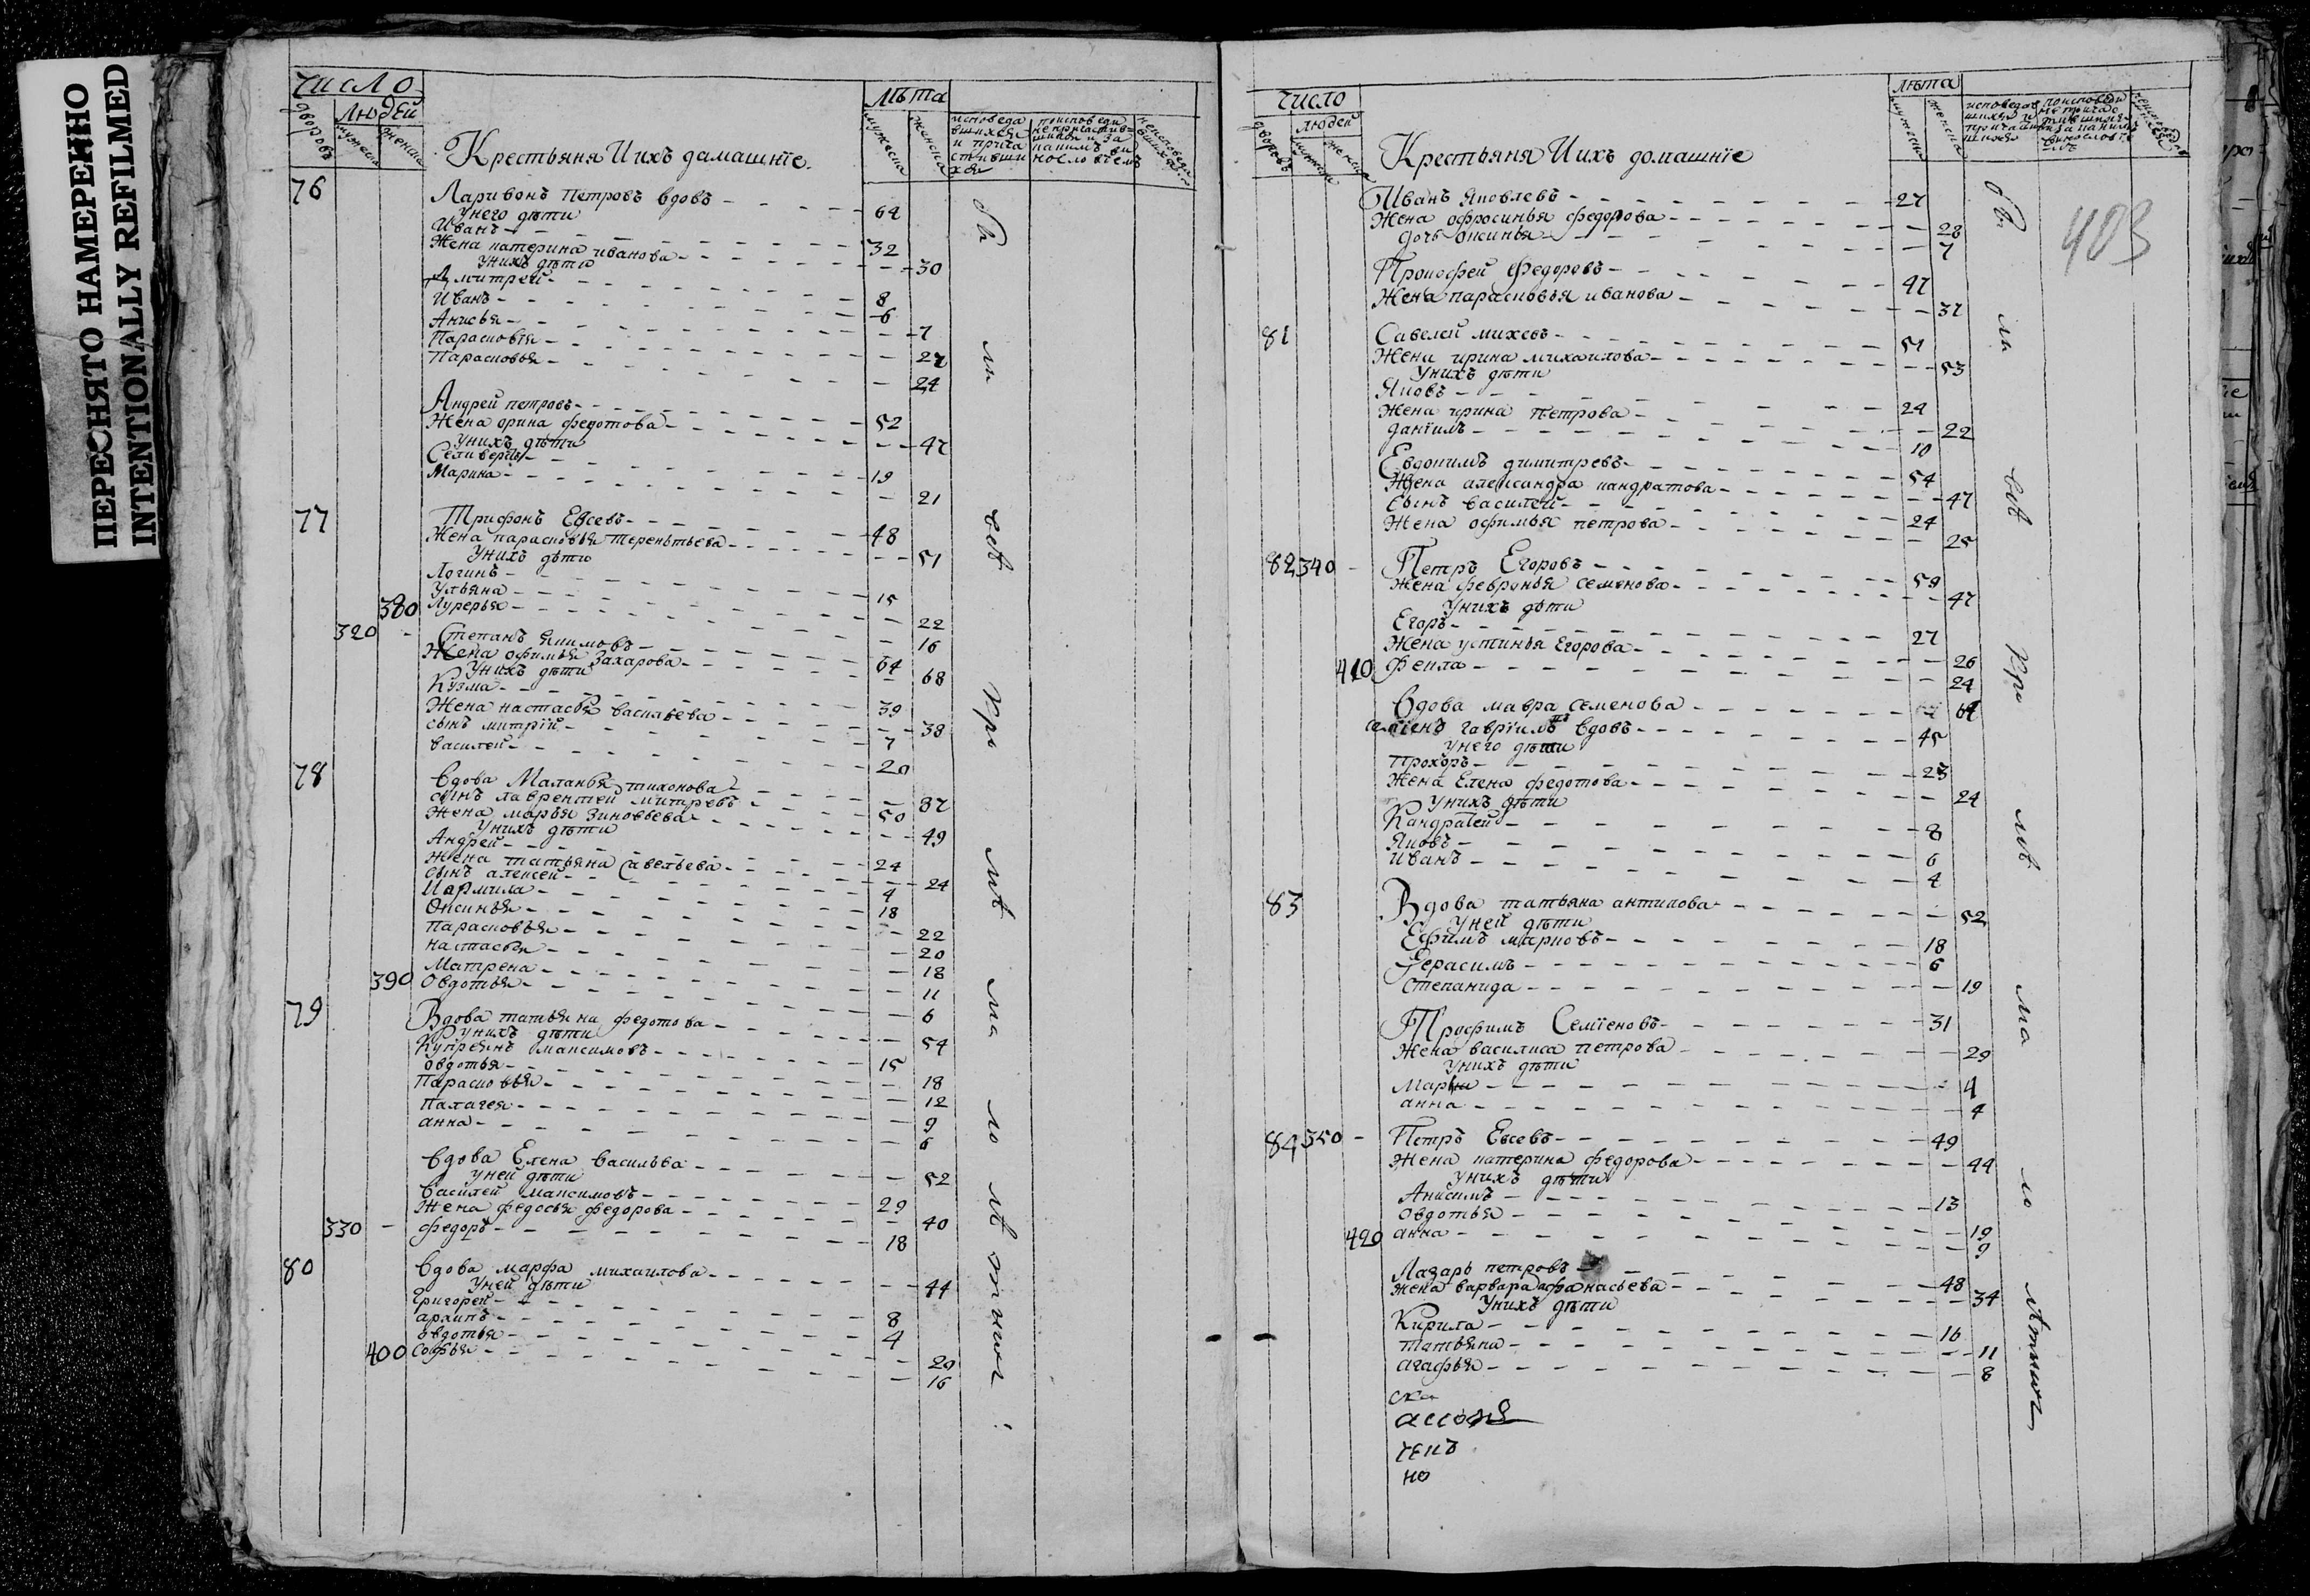 ПЕРЕСНЯТО НАМЕРЕННО
INTENTIONALLY REFILMED
число
людей
дворовъ
мужеска
женска
Крестьяня Иихъ дамашнїе.
лѣта
мужеска
женска
исповеда
вшихся
и прича
стивши
хся
76
Ларивонъ петровъ вдовъ - 64
Унего дѣти
Иванъ - 32
Жена катерина иванова - 30
Унихъ дѣти
Дмитрей - 8
Иванъ - 6
Анисья - 7
Парасковїя - 27
Парасковья - 24
Андрей петровъ - 52
Жена орина федотова - 47
Унихъ дѣти
Селиверстъ - 19
Марина - 21
77
Трифонъ Евсевъ - 48
Жена парасковья терентьева - 51
Унихъ дѣти
Логинъ - 15
Ульяна - 22
380 Лукерья - 16
320 - Степанъ Якимовъ - 64
Жена офимья Захарова - 68
Унихъ дѣти
Кузма - 39
Жена настасья васильева - 38
сынъ митрїй - 7
василей - 20
78
вдова Маланья тихонова - 87
сынъ лаврентей митревъ - 50
Жена марья Зиновьева - 49
Унихъ дѣти
Андрей - 24
Жена татьяна Савельева - 24
сынъ алексей - 4
Иармила - 18
Оксинья - 22
парасковья - 20
настасья - 18
Матрена - 11
390 Овдотья - 6
79
Вдова татьяна федотова - 54
Унихъ дѣти
Купреянъ максимовъ - 15
овдотья - 18
Парасковья - 12
палагея - 9
анна - 6
вдова Елена васильва - 52
Уней дѣти
василей максимовъ - 29
Жена федосья федорова - 40
330 - федоръ - 18
80
вдова марфа михаилова - 44
Уней дѣти
григорей - 8
архипъ - 4
овдотья - 20
400 софья - 16
бы
ли
всѣ
при
мѣ
ма
ло
лѣтних
число
людей
дворовъ
мужеска
женска
Крестьяня Иихъ домашнїе
лѣта
мужеска
женска
403
Иванъ Яковлевъ - 27
Жена офросинья федорова - 28
дочь оксинья - 7
Прокофей Федоровъ - 47
Жена парасковья иванова - 37
81
Савелей михевъ - 51
Жена ирина михаилова - 53
Унихъ дѣти
Яковъ - 24
Жена ирина петрова - 22
данїилъ - 10
Евдокимъ димитревъ - 54
Жена александра кандратова - 47
сынъ василей - 24
Жена офимья петрова - 25
82 340 - Петръ Егоровъ - 59
Жена февронья семенова - 47
Унихъ дѣти
Егоръ - 27
Жена устинья Егорова - 26
410 фекла - 24
вдова мавра семенова - 64
семїенъ гаврїилъ вдовъ - 45
Унего дѣти
прохоръ - 23
Жена Елена федотова - 24
Унихъ дѣти
Кандратей - 8
Яковъ - 6
иванъ - 4
83
Вдова татьяна антипова - 52
Уней дѣти
Ефимъ марковъ - 18
Герасимъ - 6
степанида - 19
Трофимъ Семїеновъ - 31
Жена василиса петрова - 29
Унихъ дѣти
Марья - 4
анна - 4
84 350 - Петръ Евсевъ - 49
Жена катерина федорова - 44
Унихъ дѣти
Анисимъ - 13
Овдотья - 19
420 анна - 9
Лазарь петровъ - 48
жена варвара афанасьева - 34
Унихъ дѣти
Кирила - 16
татьяна - 11
агафья - 8
бы
ли
всѣ
при
мѣ
ма
ло
лѣтних
ченъ
но